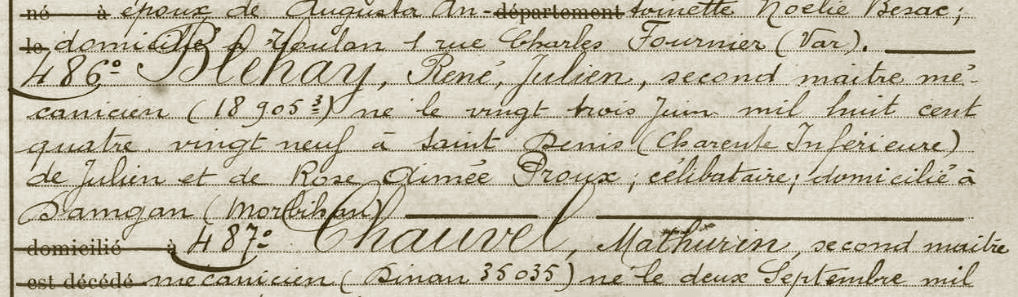 né à époux de Augusta An- département toinette Noélie Besac;
le domicilié à Toulon 1 rue Charles Fournier (Var).
486° Blehay, René, Julien, second maitre mé-
canicien (18905³) né le vingt trois Juin mil huit cent
quatre vingt neuf à Saint Denis (Charente Inférieure)
de Julien et de Rose Aimée Proux; célibataire; domicilié à
Damgan (Morbihan)
domicilié à 487° Chauvel, Mathurin, second maitre
est décédé mécanicien (Dinan 35035) né le deux Septembre mil